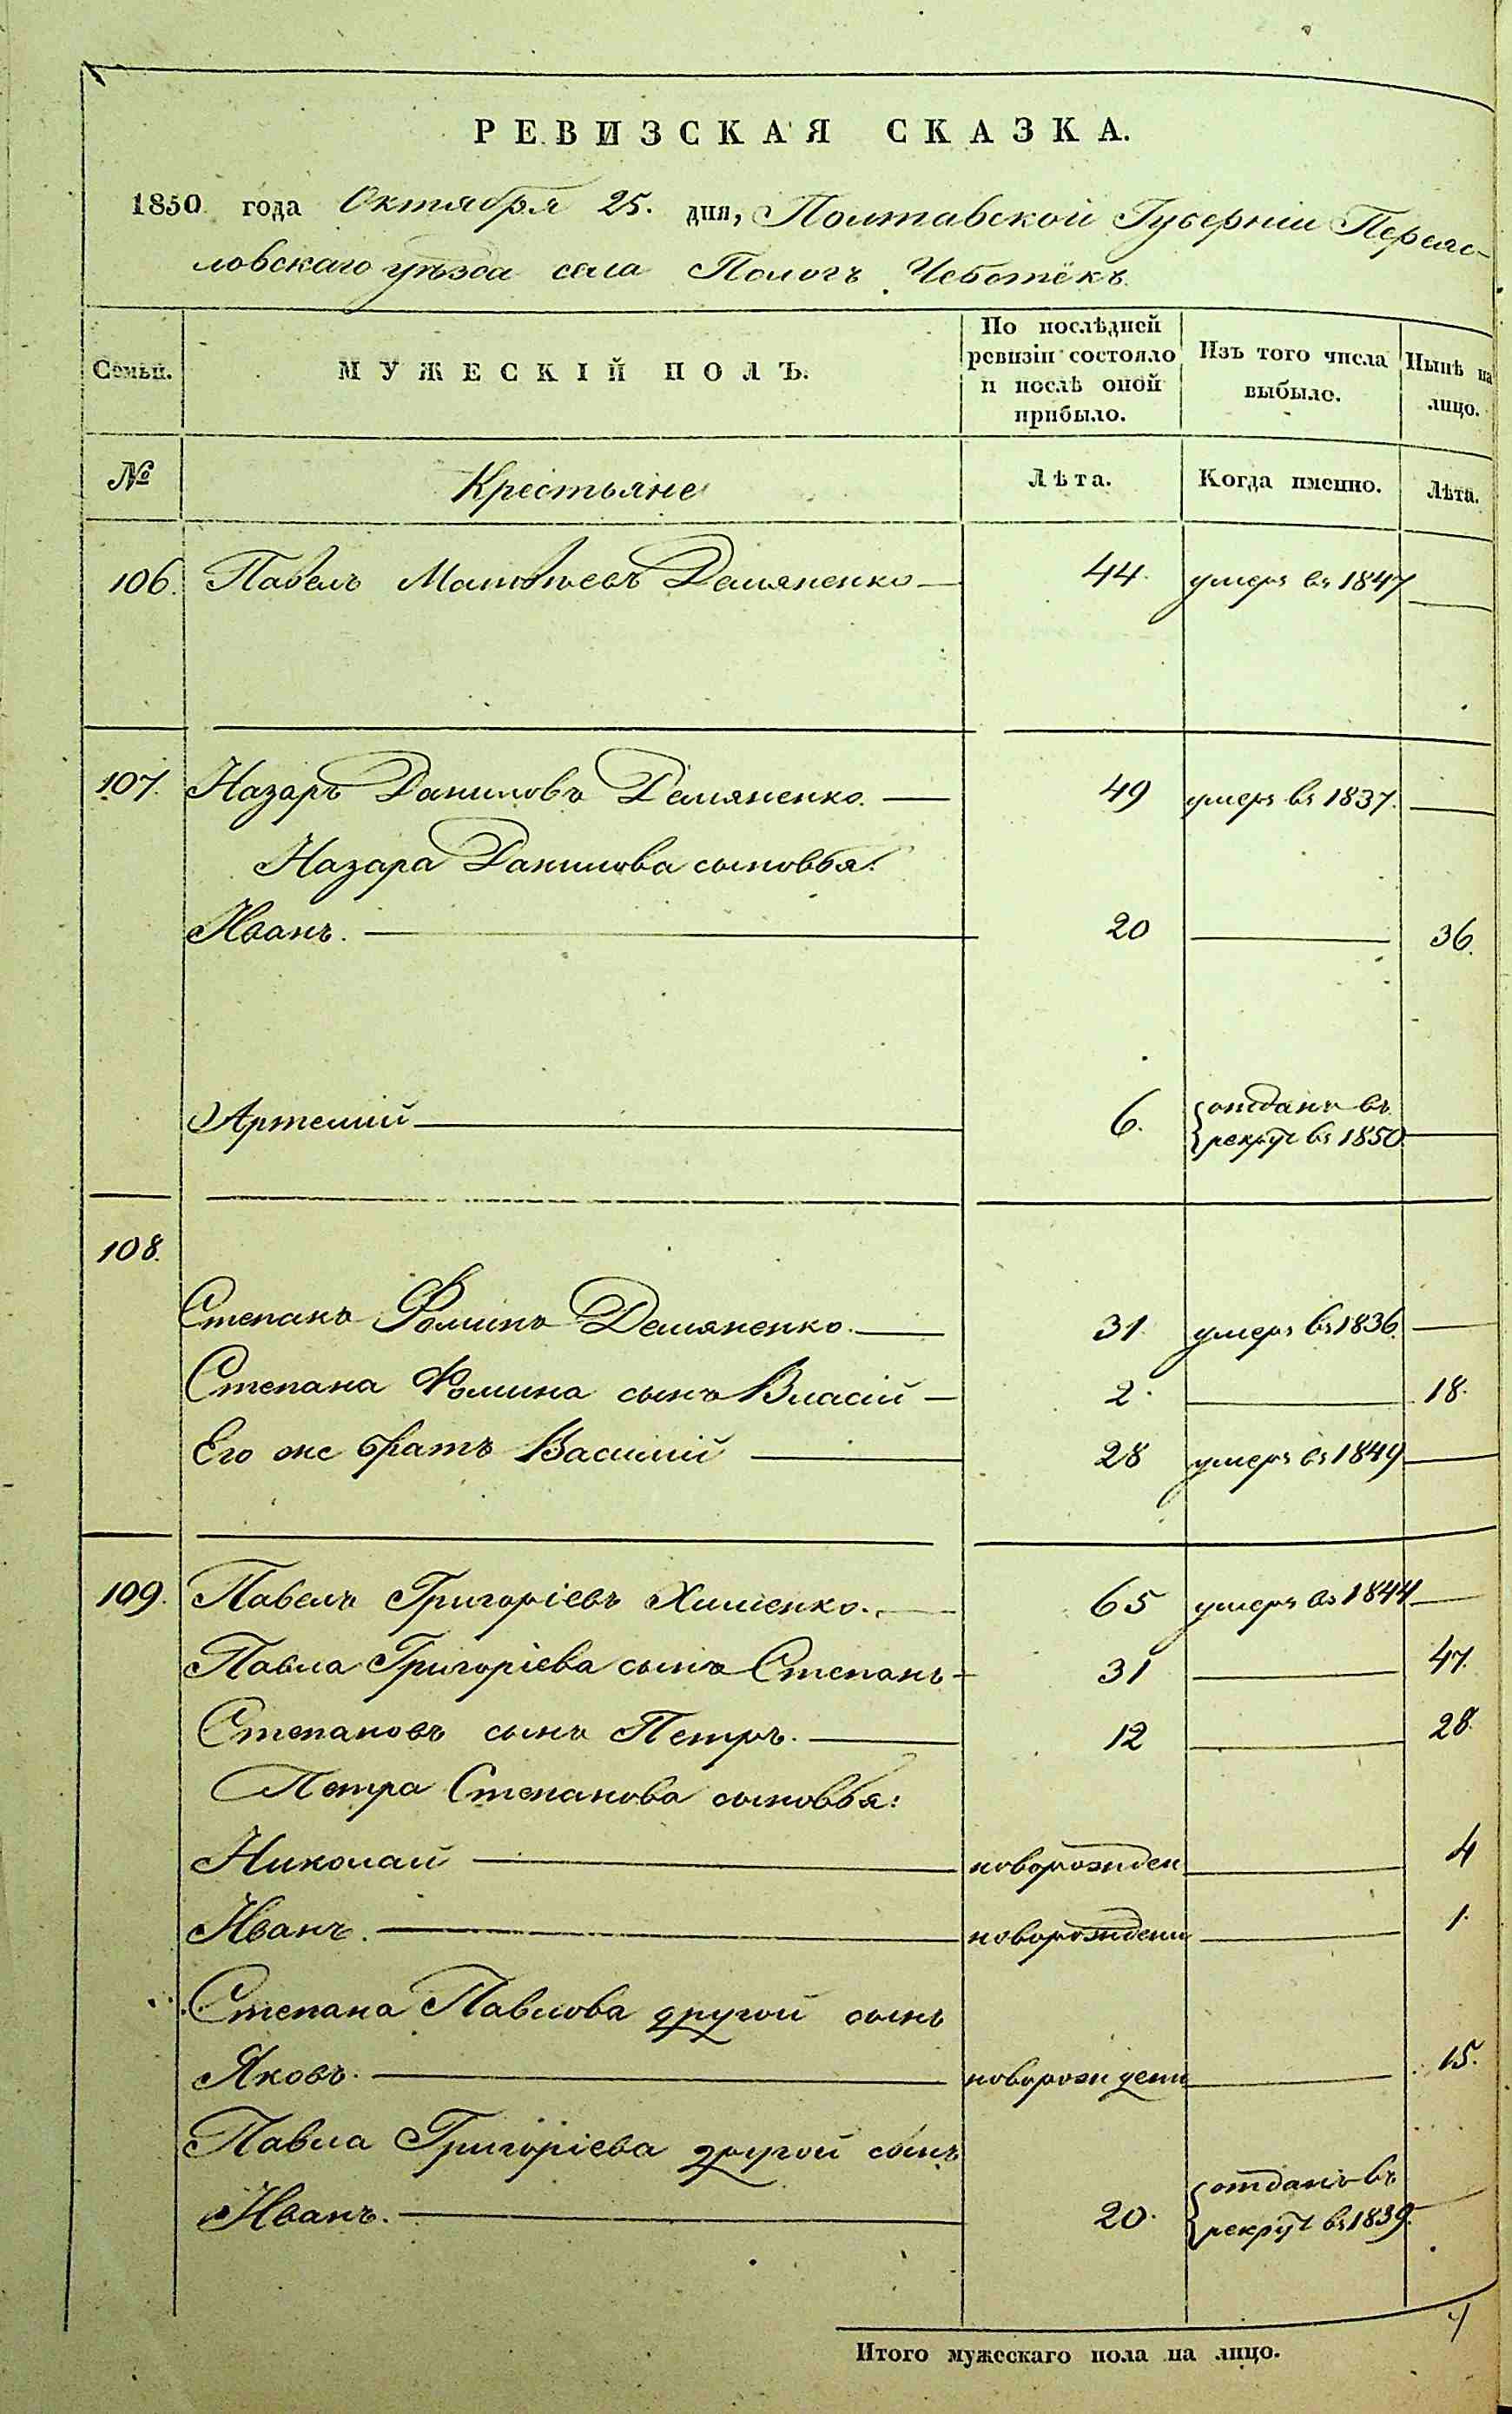 РЕВИЗСКАЯ СКАЗКА.
1850 года Октября 25. дня, Полтавской Губерніи Переяс-
ловскаго уѣзда села Пологъ Чеботёкъ
Семьи.
МУЖЕСКІЙ ПОЛЪ.
По послѣдней ревизіи состояло и послѣ оной прибыло.
Изъ того числа выбыло.
Нынѣ на лицо.
№ Крестьяне Лѣта. Когда именно. Лѣта.
106. Павелъ Матвѣевъ Демяненко — 44. умеръ въ 1847 —
107. Назаръ Даниловъ Демяненко. — 49 умеръ въ 1837. —
Назара Данилова сыновья:
Иванъ. — 20 — 36.
Артемій — 6. отданъ въ
рекрут въ 1850 —
108.
Степанъ Фоминъ Демяненко. — 31. умеръ въ 1836. —
Степана Фомина сынъ Власій — 2. — 18.
Его же братъ Василій — 28 умеръ въ 1849 —
109. Павелъ Григоріевъ Хименко. — 65 умеръ въ 1844 —
Павла Григоріева сынъ Степанъ — 31 — 47.
Степановъ сынъ Петръ. — 12 — 28.
Петра Степанова сыновья:
Николай — новорожден — 4
Иванъ. — новорожденн — 1.
Степана Павлова другой сынъ
Яковъ. — новорожденн — 15.
Павла Григоріева другой сынъ
Иванъ. — 20. отданъ въ
рекрут въ 1839. —
Итого мужескаго пола на лицо.